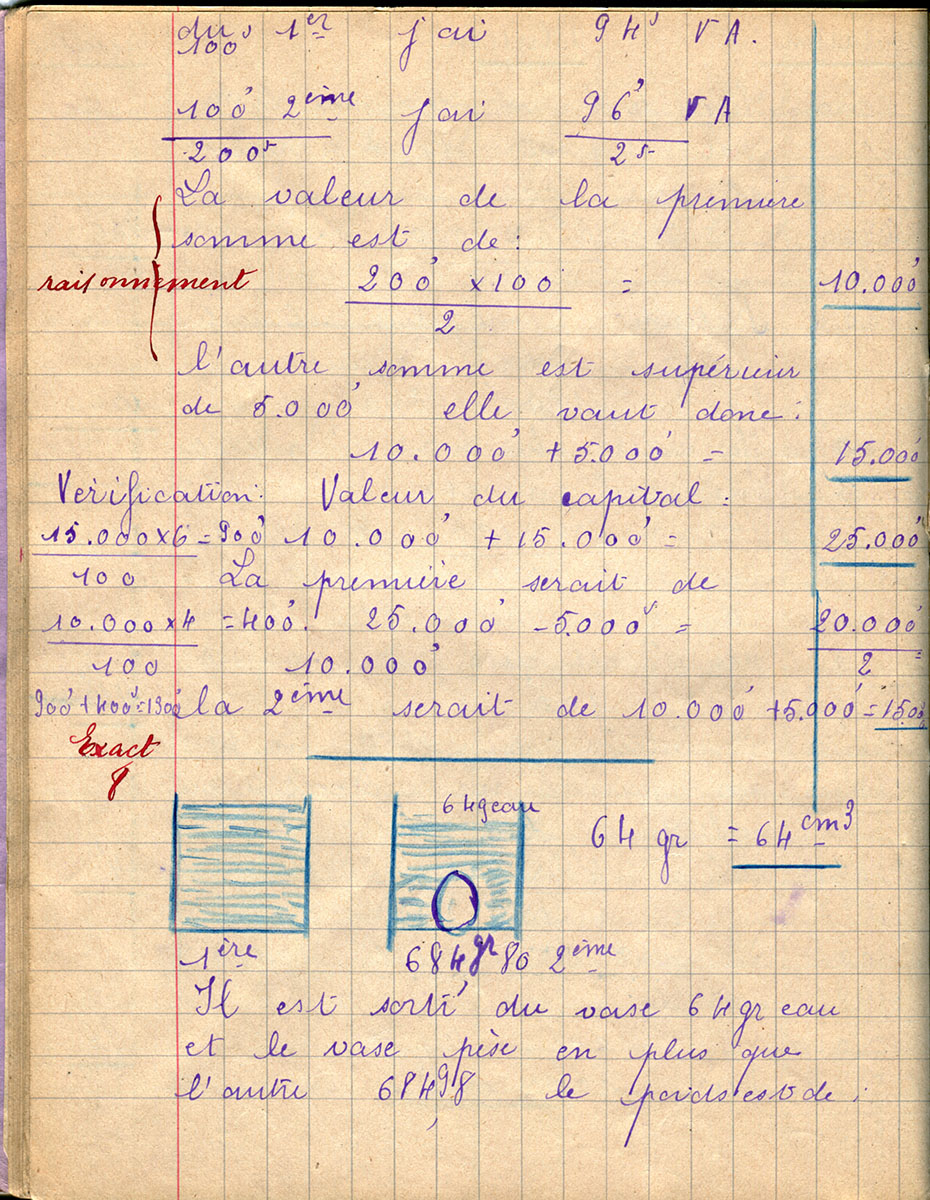 du 1er j'ai 94f VA.
100f
100f 2ème j'ai 96f VA
200f 2f
La valeur de la première
somme est de:
raisonnement
200f x100 = 10.000f
2
l'autre somme est supérieur
de 5.000f elle vaut donc:
10.000f + 5.000f = 15.000f
Vérification: Valeur du capital:
15.000x6 = 900f 10.000f + 15.000f = 25.000f
100 La première serait de
10.000x4 = 400f. 25.000f - 5.000f = 20.000f
100 10.000f 2
900f + 400f = 1300f la 2ème serait de 10.000f + 5.000f = 1500
Exact
8
64g eau
64 gr = 64 cm3
1ère 684gr 80 2ème
Il est sorti du vase 64gr eau
et le vase pèse en plus que
l'autre 684g8 le poids est de: